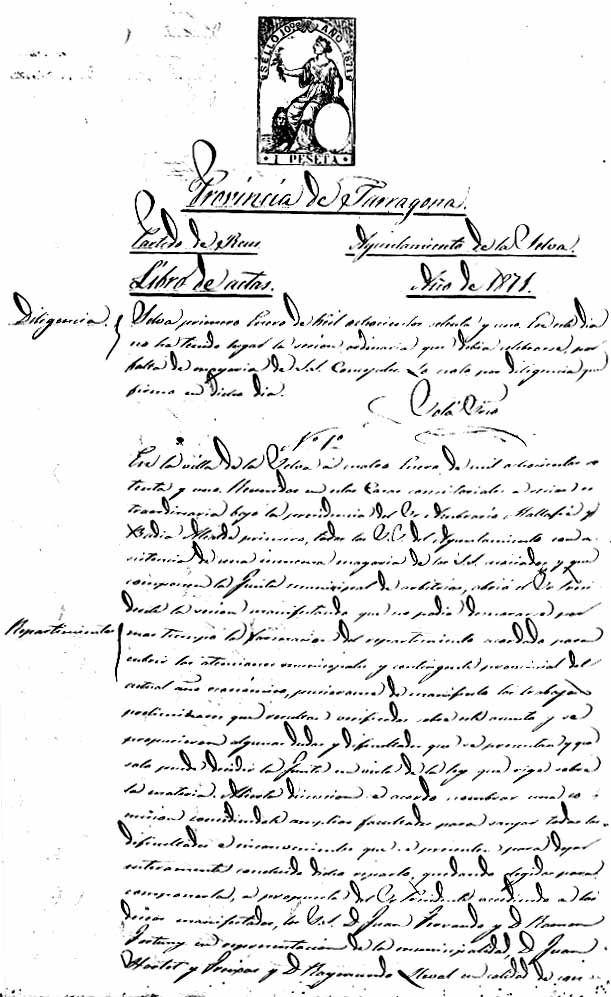 SELLO 10º AÑO 1871
1 PESETA
Provincia de Tarragona.
Partido de Reus Ayuntamiento de la Selva.
Libro de actas. Año de 1871.
Diligencia. Selva primero Enero de mil ochocientos setenta y uno. En este dia
no ha tenido lugar la sesion ordinaria que debia celebrarse, por
falta de mayoria de S.S. Concejales. Lo noto por diligencia que
firmo en dicho dia.
Nº 1º
En la villa de la Selva á cuatro Enero de mil ochocientos se
tenta y uno. Reunidos en estas Casas consistoriales a sesion es
traordinaria bajo la presidencia del Sr. Mallafré y
Badia Alcalde primero, todos los S.S. del Ayuntamiento con a
sistencia de una inmensa mayoria de los S.S. asociados y que
componen la Junta municipal de arbitrios, abrió el Sr. Presi
dente la sesion manifestando que no podia demorarse por
Repartimiento mas tiempo la formacion del repartimiento acordado para
cubrir las atenciones municipales y contingente provincial del
actual año economico, pusieronse de manifiesto los trabajos
preliminares que verificados sobre este asunto y se
propusieron algunas dudas y dificultades que se presentan y que
solo puede decidir la Junta en vista de la ley que rige sobre
la materia. discusion se acordó nombrar una co
mision concediendole amplias facultades para zanjar todas las
dificultades e inconvenientes que se presenten para dejar
enteramente concluido dicho reparto, quedando elegidos para
componerla, a propuesta del Sr. Presidente accediendo a los
deseos manifestados, los S.S. D. Juan y D. Ramon
Fortuny en representacion de la municipalidad, D. Juan
y D. Raymundo en calidad de